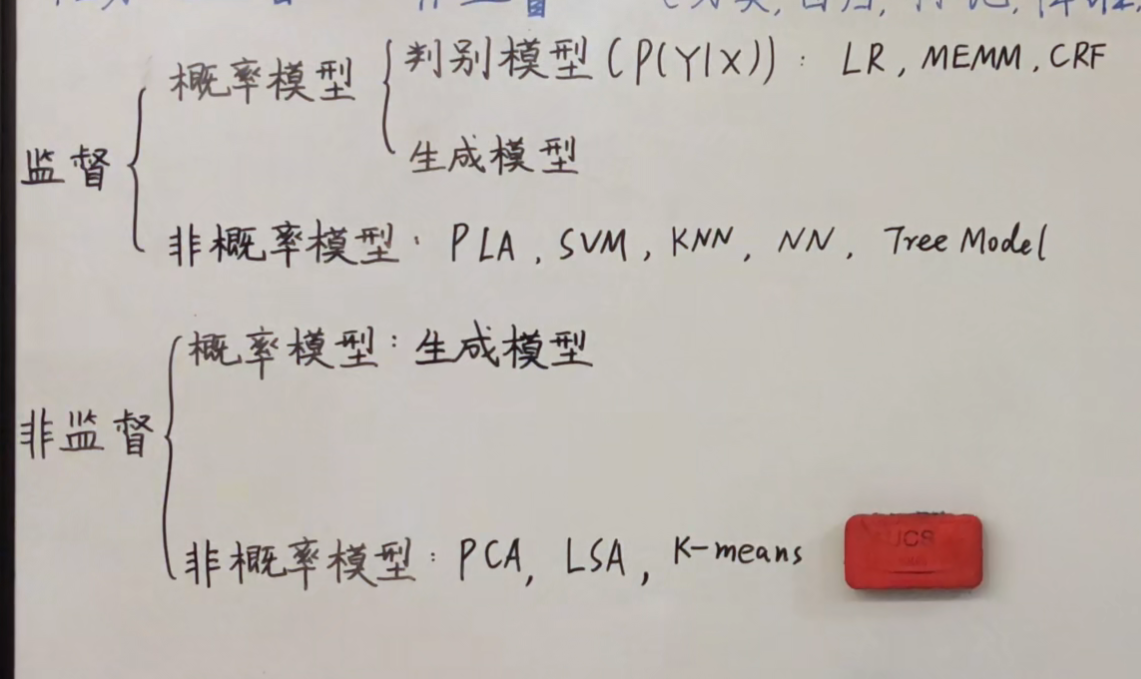 监督
概率模型
判别模型 (P(Y|X)): LR, MEMM, CRF
生成模型
非概率模型: PLA, SVM, KNN, NN, Tree Model
非监督
概率模型: 生成模型
非概率模型: PCA, LSA, K-means
UCS